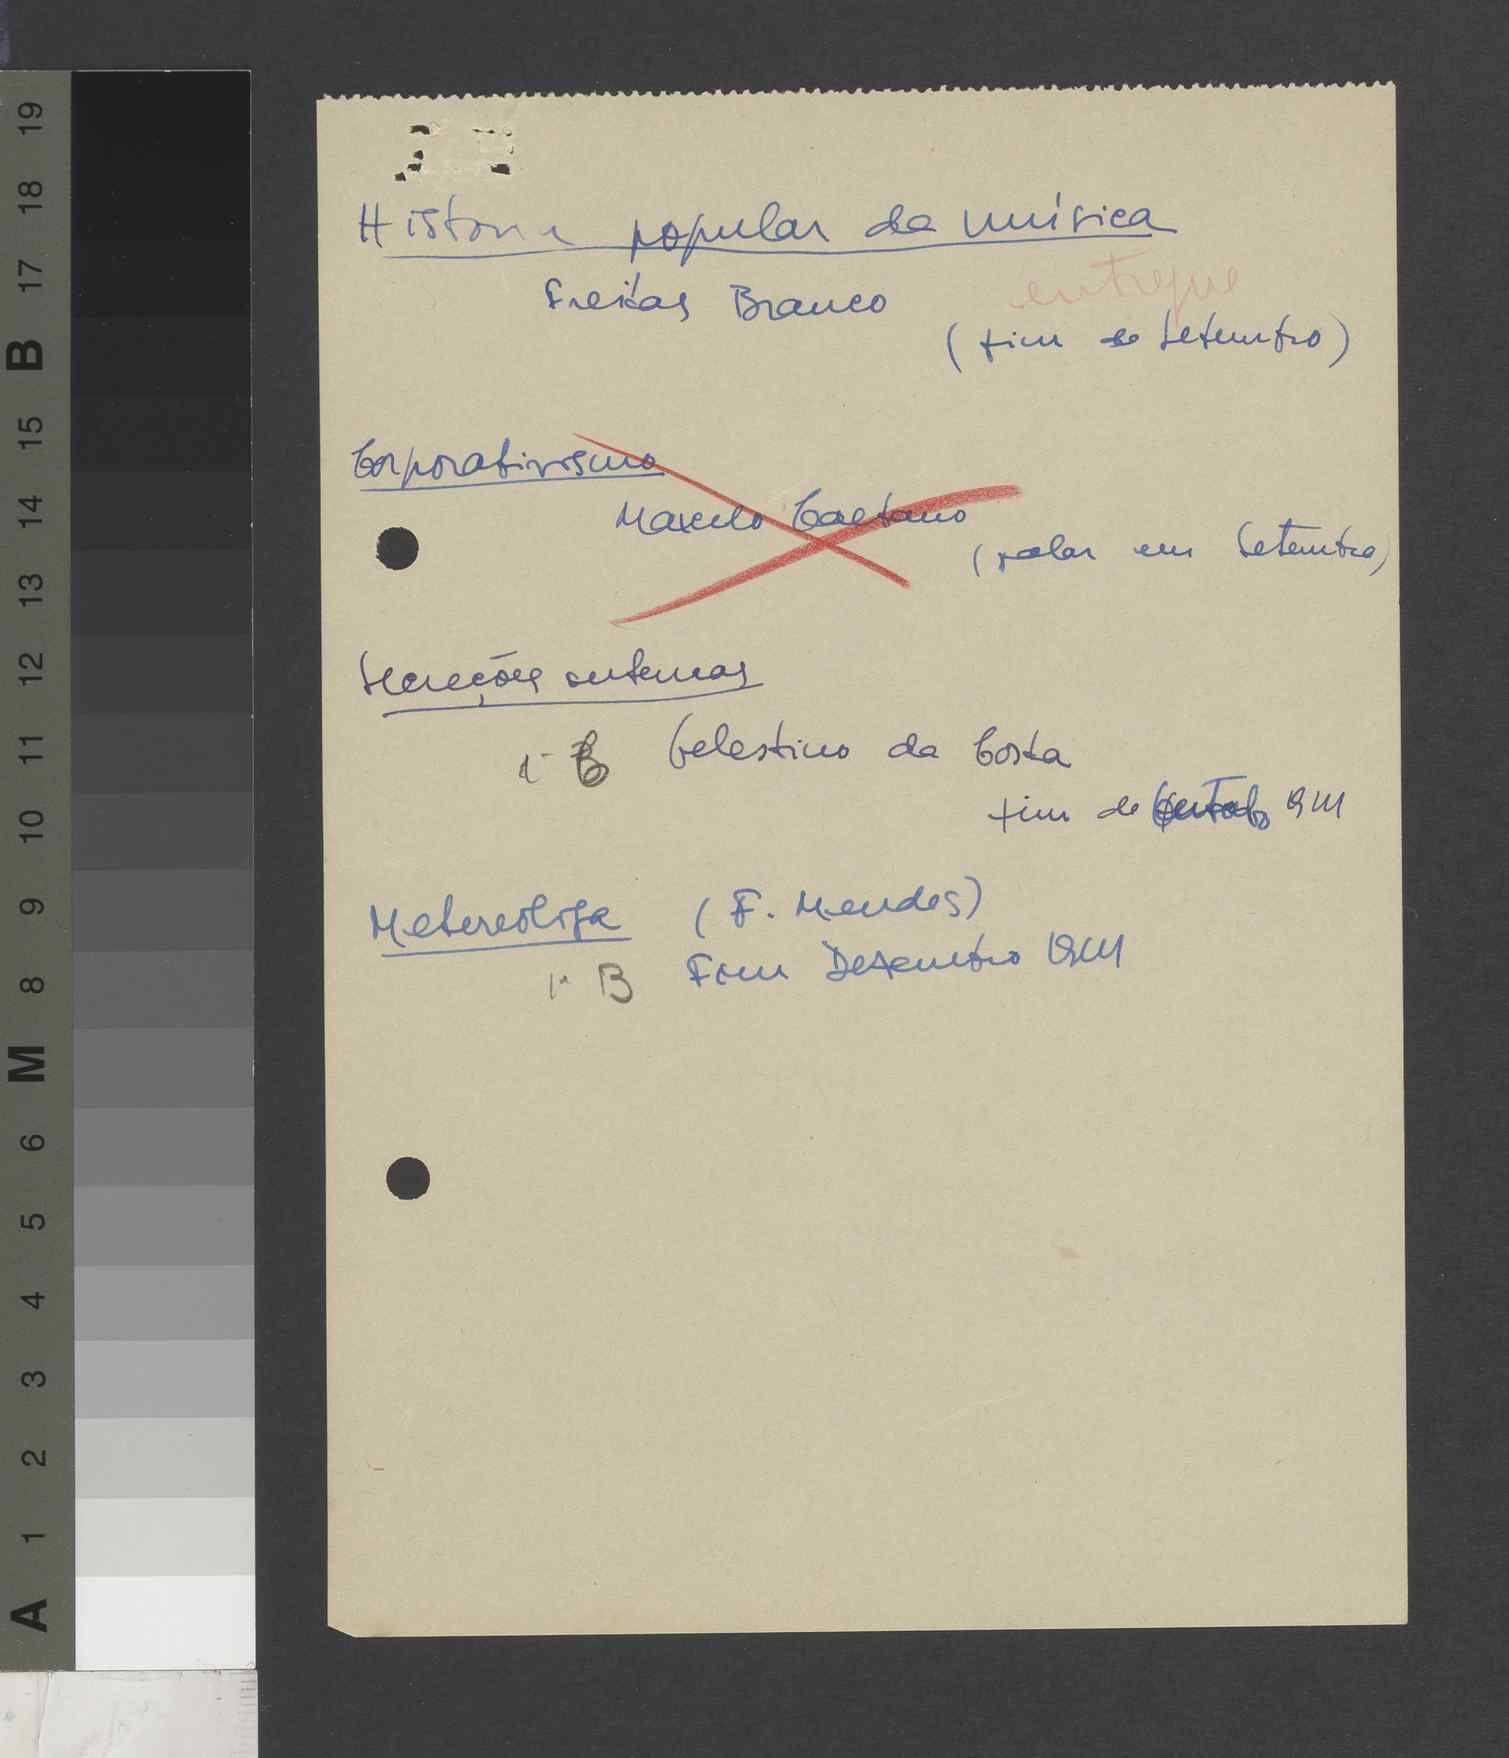 Historia popular da música
Freitas Branco
entregue
(fim de Setembro)
Corporativismo
Marcelo Caetano
(falar em Setembro)
Secreções internas
1ª B Celestino da Costa
fim de 1941
Metereoliga (F. Mendes)
1ª B Fim Dezembro 1941
19
18
17
B
15
14
13
12
11
10
9
8
M
6
5
4
3
2
1
A